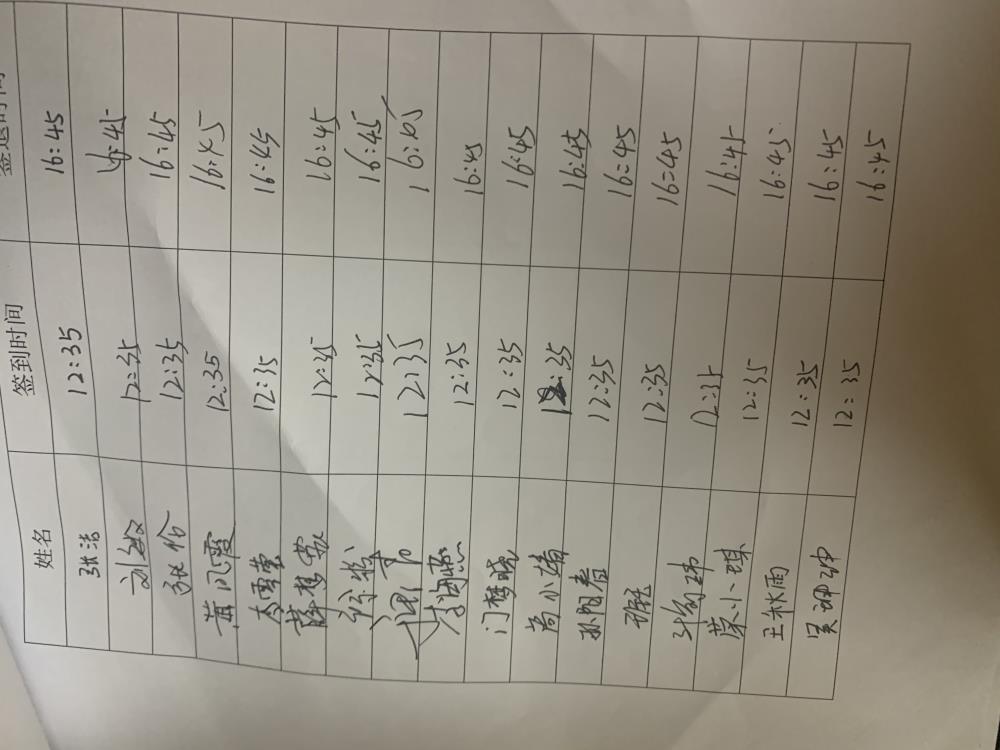 姓名 签到时间 签退时间
张洁 12:35 16:45
12:35 16:45
张伶 12:35 16:45
黄凤霞 12.35 16:45
12:35 16:45
薛梦蒙 12:35 16:45
12:35 16:45
12:35 16:45
12:35 16:45
门梦晓 12:35 16:45
尚小倩 12:35 16:45
孙旭春 12:35 16:45
12:35 16:45
12:35 16:45
蔡小璨 12:35 16:45
王秋雨 12:35 16:45
吴坤坤 12:35 16:45